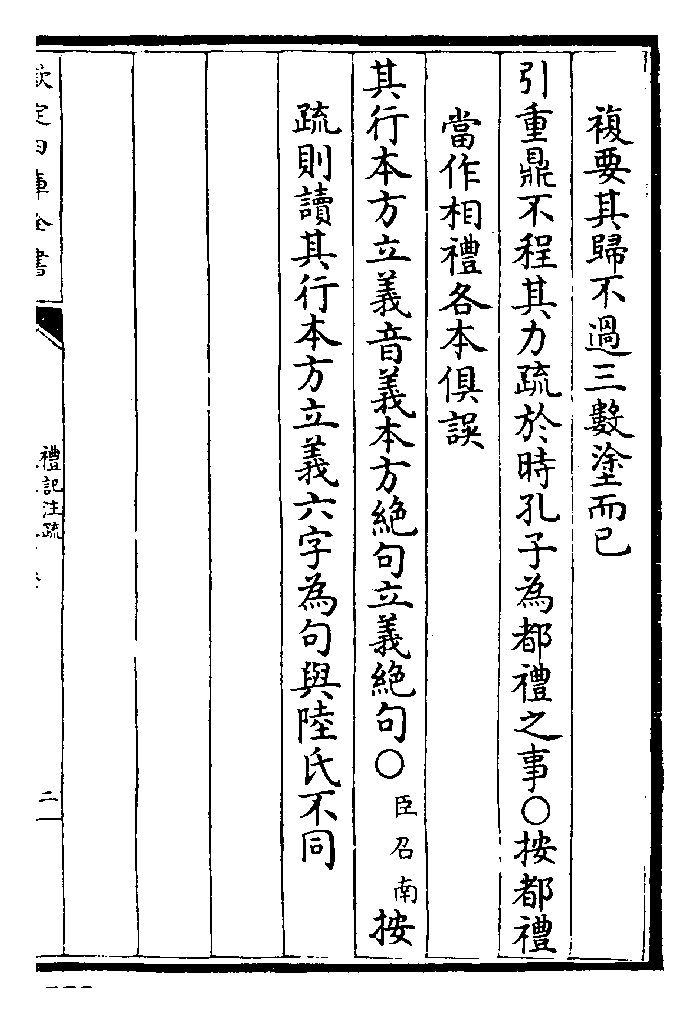 複要其歸不過三數塗而已
引重鼎不程其力疏於時孔子為都禮之事○按都禮
當作相禮各本俱誤
其行本方立義音義本方絶句立義絶句○臣召南按
疏則讀其行本方立義六字為句與陸氏不同
欽定四庫全書
禮記注疏
二